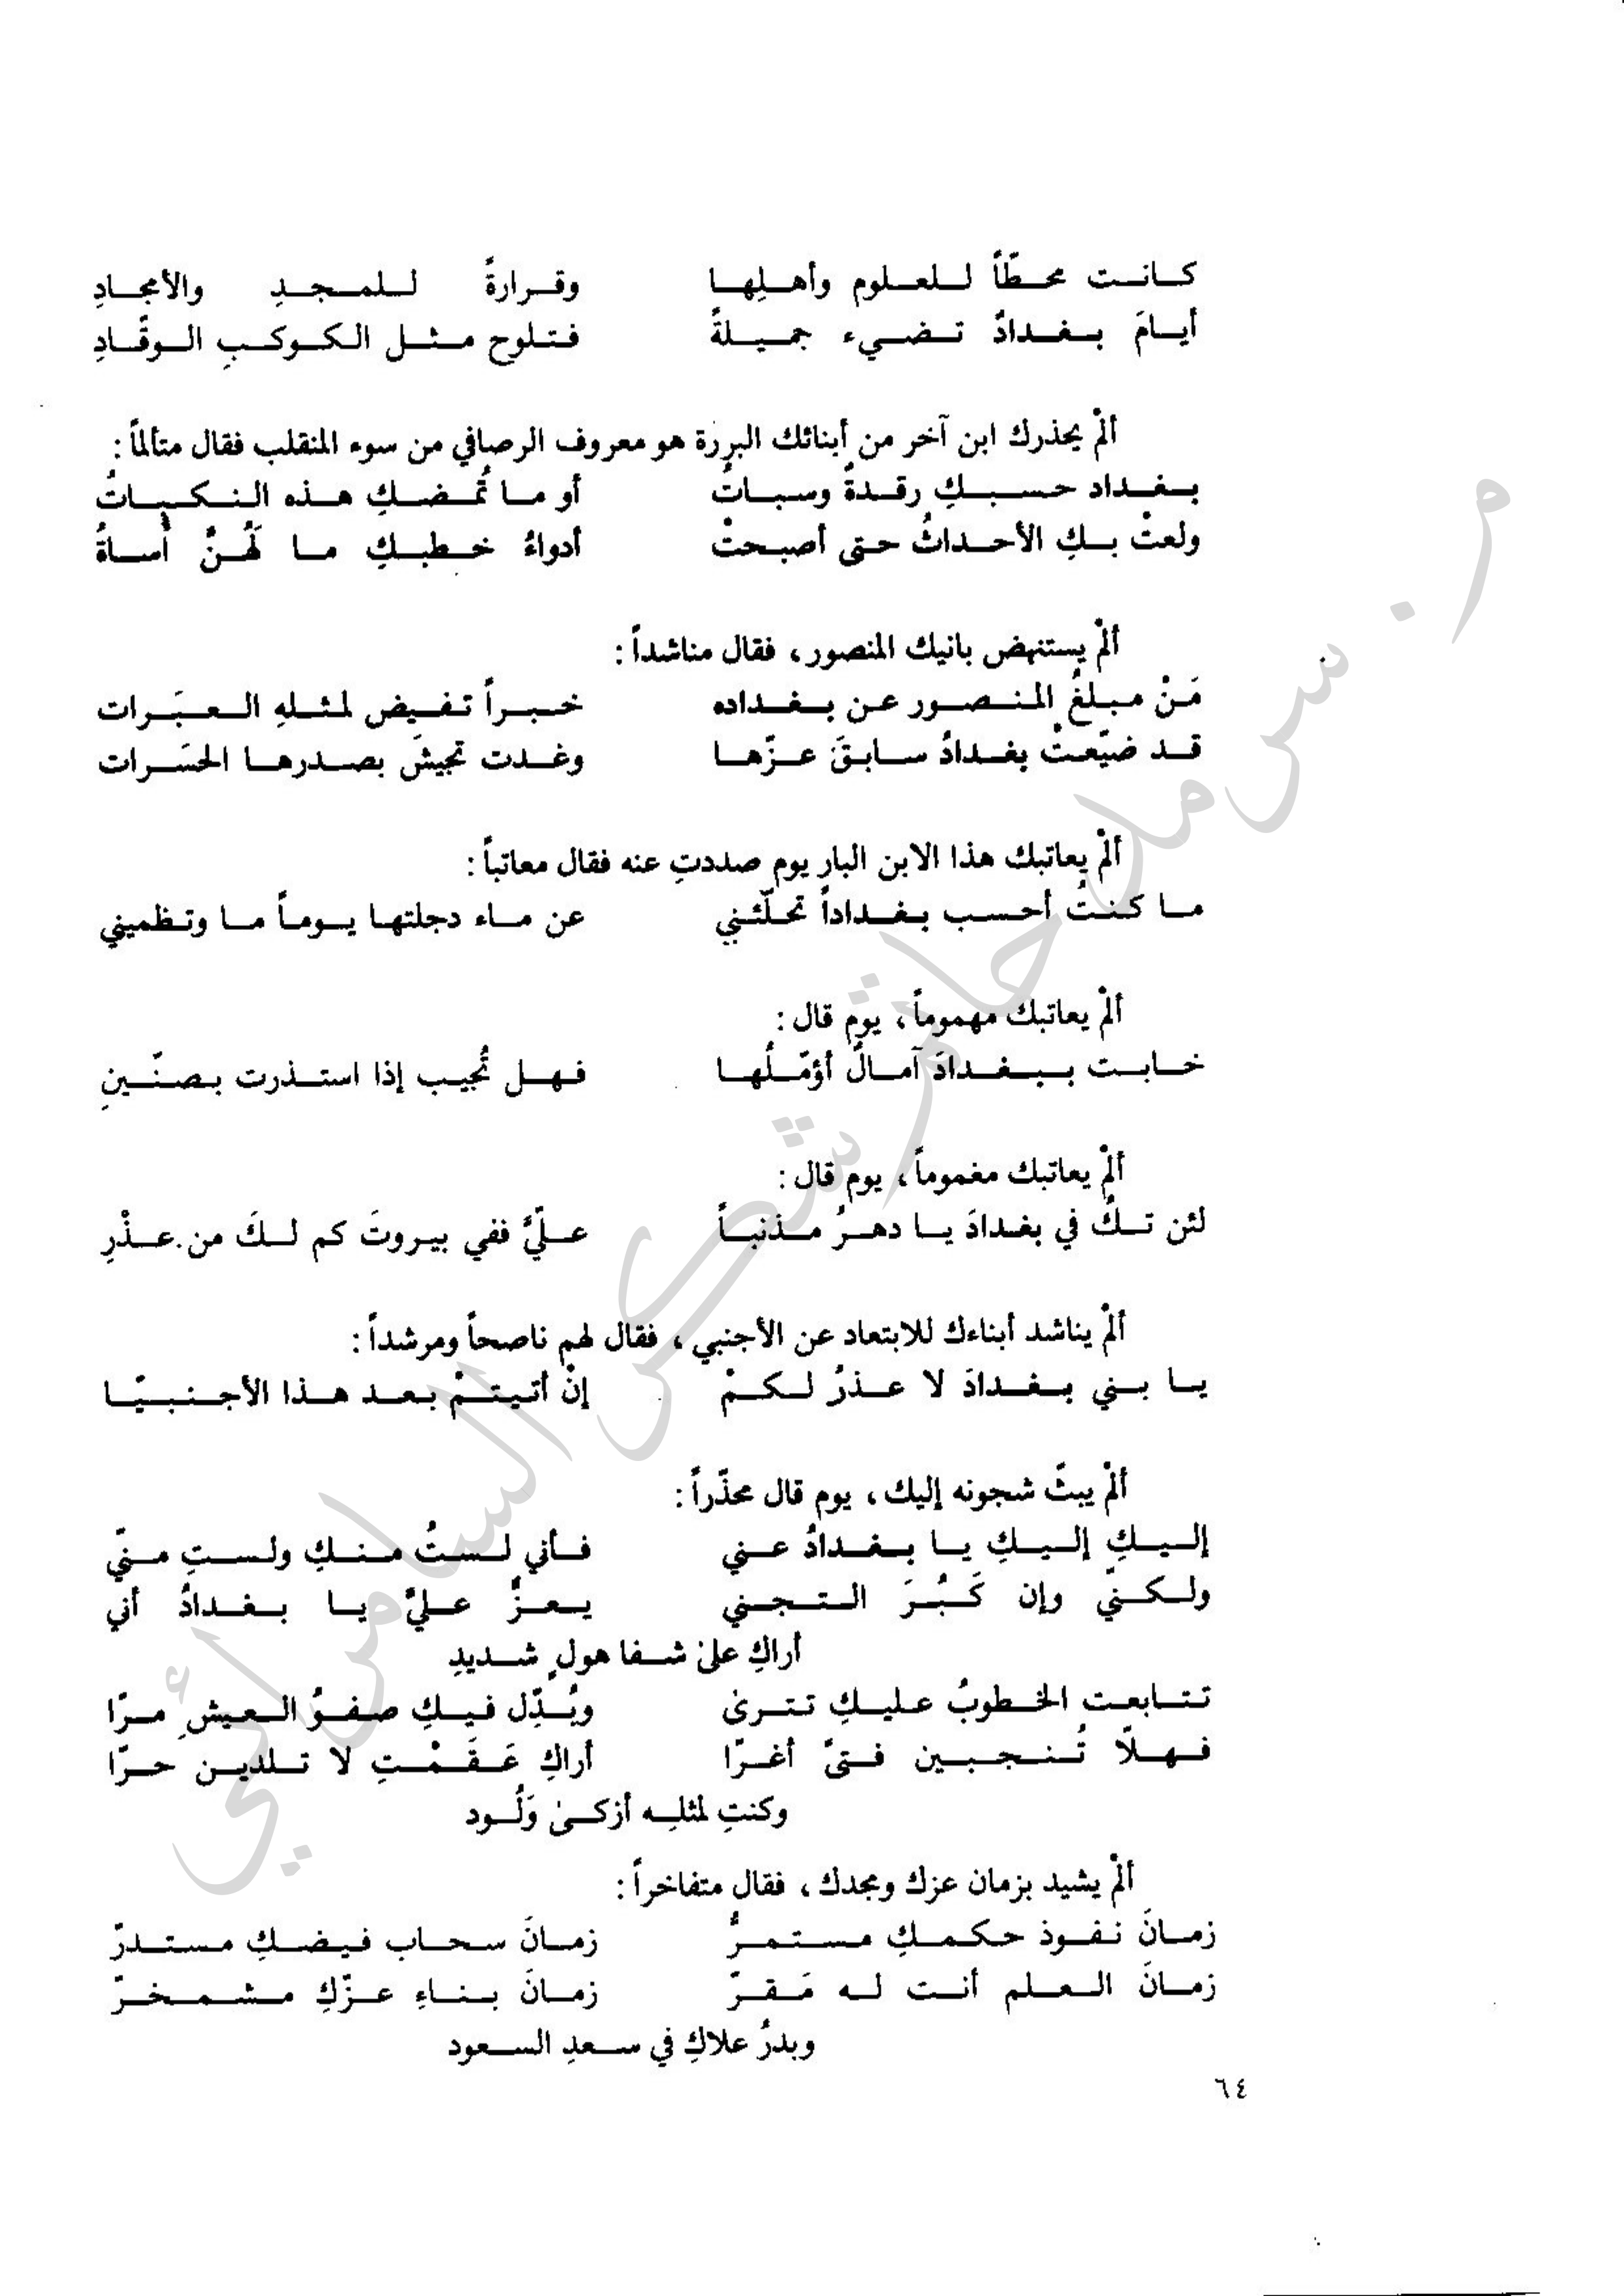 كانت محطّاً للعلوم وأهلِها وقرارةً للمجدِ والأمجادِ
أيامَ بغدادٌ تضيء جميلةً فتلوح مثل الكوكبِ الوقّادِ
ألمْ يحذرك ابن آخر من أبنائك البررة هو معروف الرصافي من سوء المنقلب فقال متألماً :
بغداد حسبكِ رقدةٌ وسباتُ أو ما تُمضكِ هذه النكباتُ
ولعتْ بكِ الأحداثُ حتى أصبحتْ أدواءُ خطبكِ ما لَهُنَّ أُساةُ
ألمْ يستنهض بانيك المنصور ، فقال مناشداً :
مَنْ مبلغُ المنصور عن بغداده خبراً تفيض لمثلهِ العبَرات
قد ضيّعتْ بغدادُ سابقَ عزّها وغدت تجيشَ بصدرها الحسَرات
ألمْ يعاتبك هذا الابن البار يوم صددتِ عنه فقال معاتباً :
ما كنتُ أحسب بغداداً تحلّئني عن ماء دجلتها يوماً ما وتظميني
ألمْ يعاتبك مهموماً ، يوم قال :
خابت ببغدادَ آمالٌ أؤمّلُها فهل تُجيب إذا استذرت بصنّينِ
ألمْ يعاتبك مغموماً ، يوم قال :
لئن تكُ في بغدادَ يا دهرُ مذنباً عليَّ ففي بيروتَ كم لكَ من عذْرِ
ألمْ يناشد أبناءك للابتعاد عن الأجنبي ، فقال لهم ناصحاً ومرشداً :
يا بني بغدادَ لا عذرُ لكمْ إنْ أتيتمْ بعد هذا الأجنبيّا
ألمْ يبثّ شجونه إليك ، يوم قال محذّراً :
إليكِ إليكِ يا بغدادُ عني فأني لستُ منكِ ولستِ منّي
ولكنّي وإن كَبُرَ التجني يعزُّ عليَّ يا بغدادُ أني
أراكِ علىٰ شفا هولٍ شديدِ
تتابعت الخطوبُ عليكِ تترىٰ وبُدِّل فيكِ صفوُ العيشِ مرّا
فهلّا تُنجبين فتىً أغرّا أراكِ عَقَمْتِ لا تلدين حرّا
وكنتِ لمثلِه أزكىٰ وَلُود
ألمْ يشيد بزمان عزك ومجدك ، فقال متفاخراً :
زمانَ نفوذ حكمكِ مستمرُّ زمانَ سحاب فيضكِ مستدرّ
زمانَ العلم أنت له مَقرّ زمانَ بناءِ عزّكِ مشمخرّ
وبدرُ علاكِ في سعدِ السعود
٦٤
م . سرمد حاتم شكر السامرائي